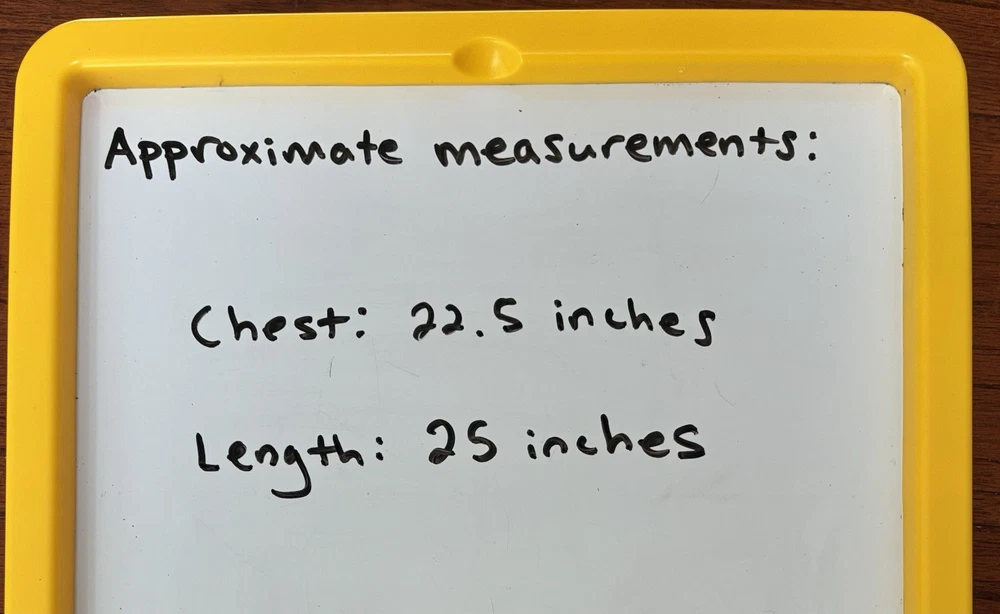 Approximate measurements:
Chest: 22.5 inches
Length: 25 inches